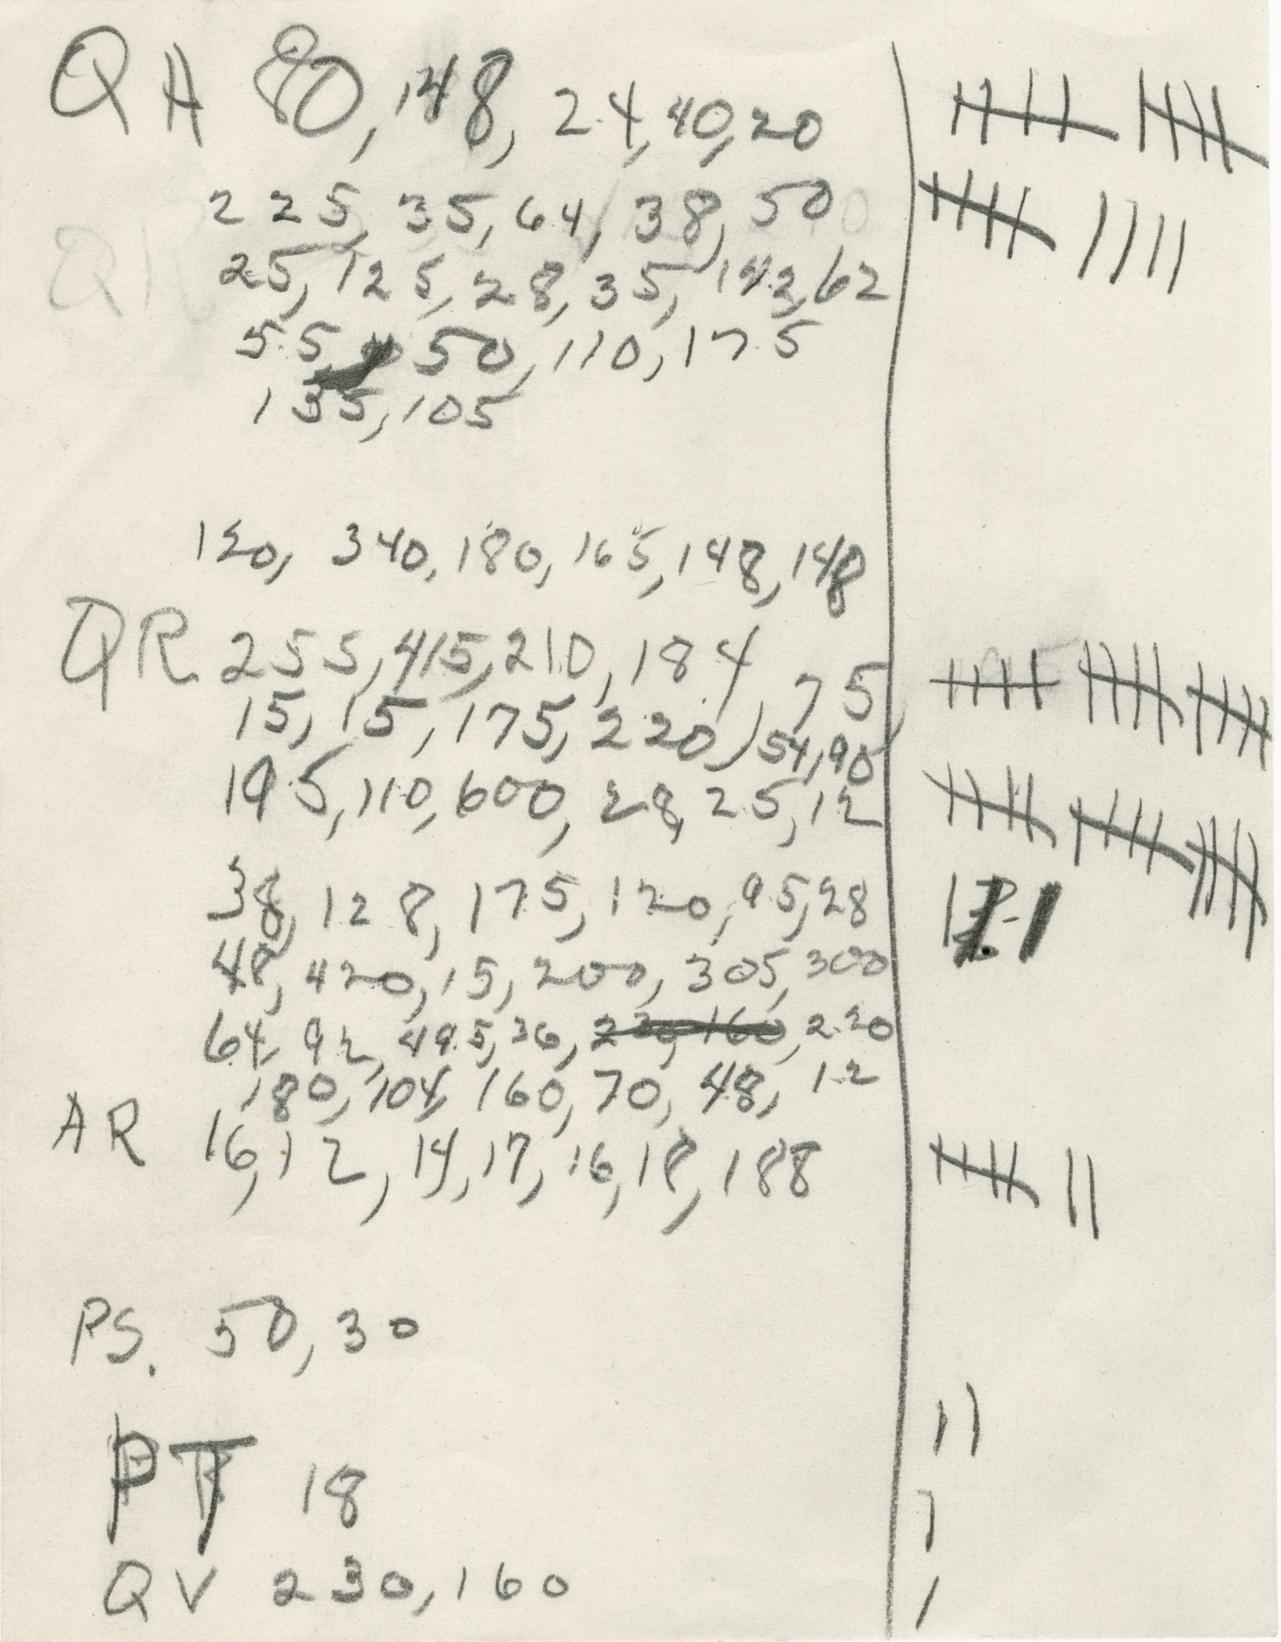 QA 80, 148, 24, 40, 20
225, 35, 64, 38, 50
25, 125, 28, 35, 142, 62
55, 50, 110, 175
135, 105
120, 340, 180, 165, 148, 148
QR 255, 415, 210, 184, 75,
15, 15, 175, 220, 54, 90
195, 110, 600, 28, 25, 12
38, 128, 175, 120, 95, 28
48, 420, 15, 200, 305, 300
64, 92, 495, 36, 230, 160, 220
180, 104, 160, 70, 48, 12
AR 16, 12, 14, 17, 16, 18, 188
PS. 50, 30
PT 18
QV 230, 160